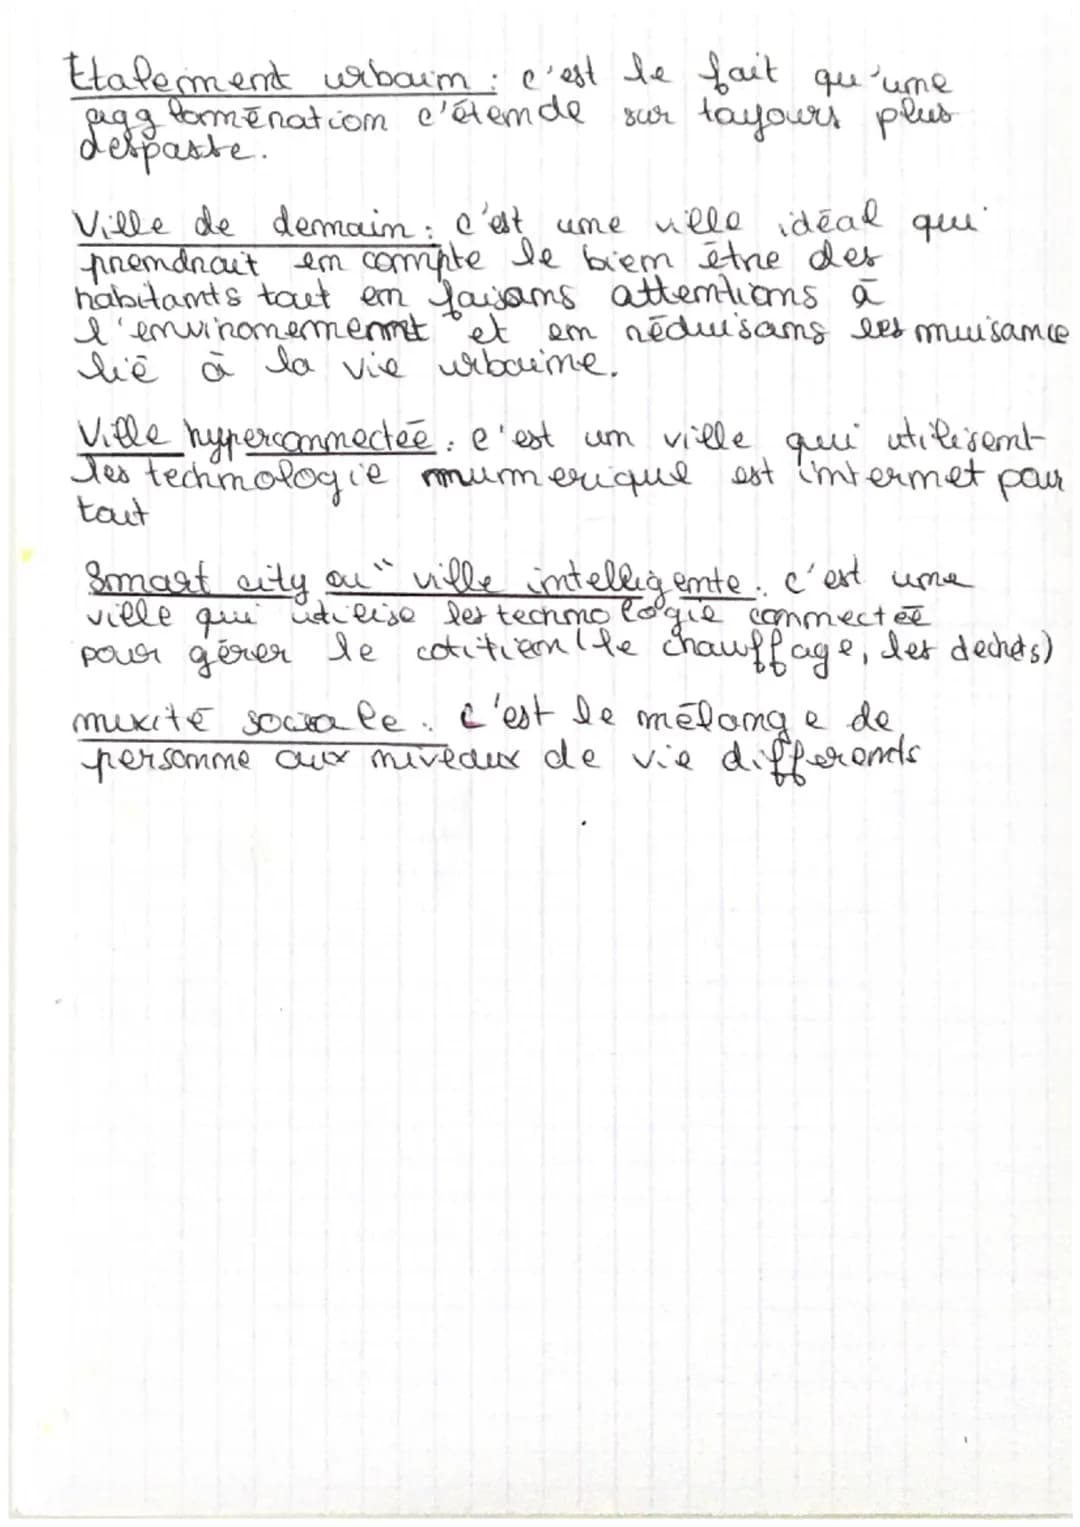 Etalement urbain : c'est le fait qu'une
aggloménation c'étende sur toujours plus
despaste.
Ville de demain : c'est une ville idéal qui
prendrait en compte le bien étre des
habitants tout en faisans attentions à
l'environement et en réduisans les nuisance
lié à la vie urbaine.
Ville hyperconnectée : c'est un ville qui utilisent
les technologie numerique est internet pour
tout
Smart city ou " ville intelligente : c'est une
ville qui utilise les technologie connectée
pour gérer le cotitien (le chauffage, les dechets)
mixité sociale : c'est le mélange de
personne aux niveaux de vie differents